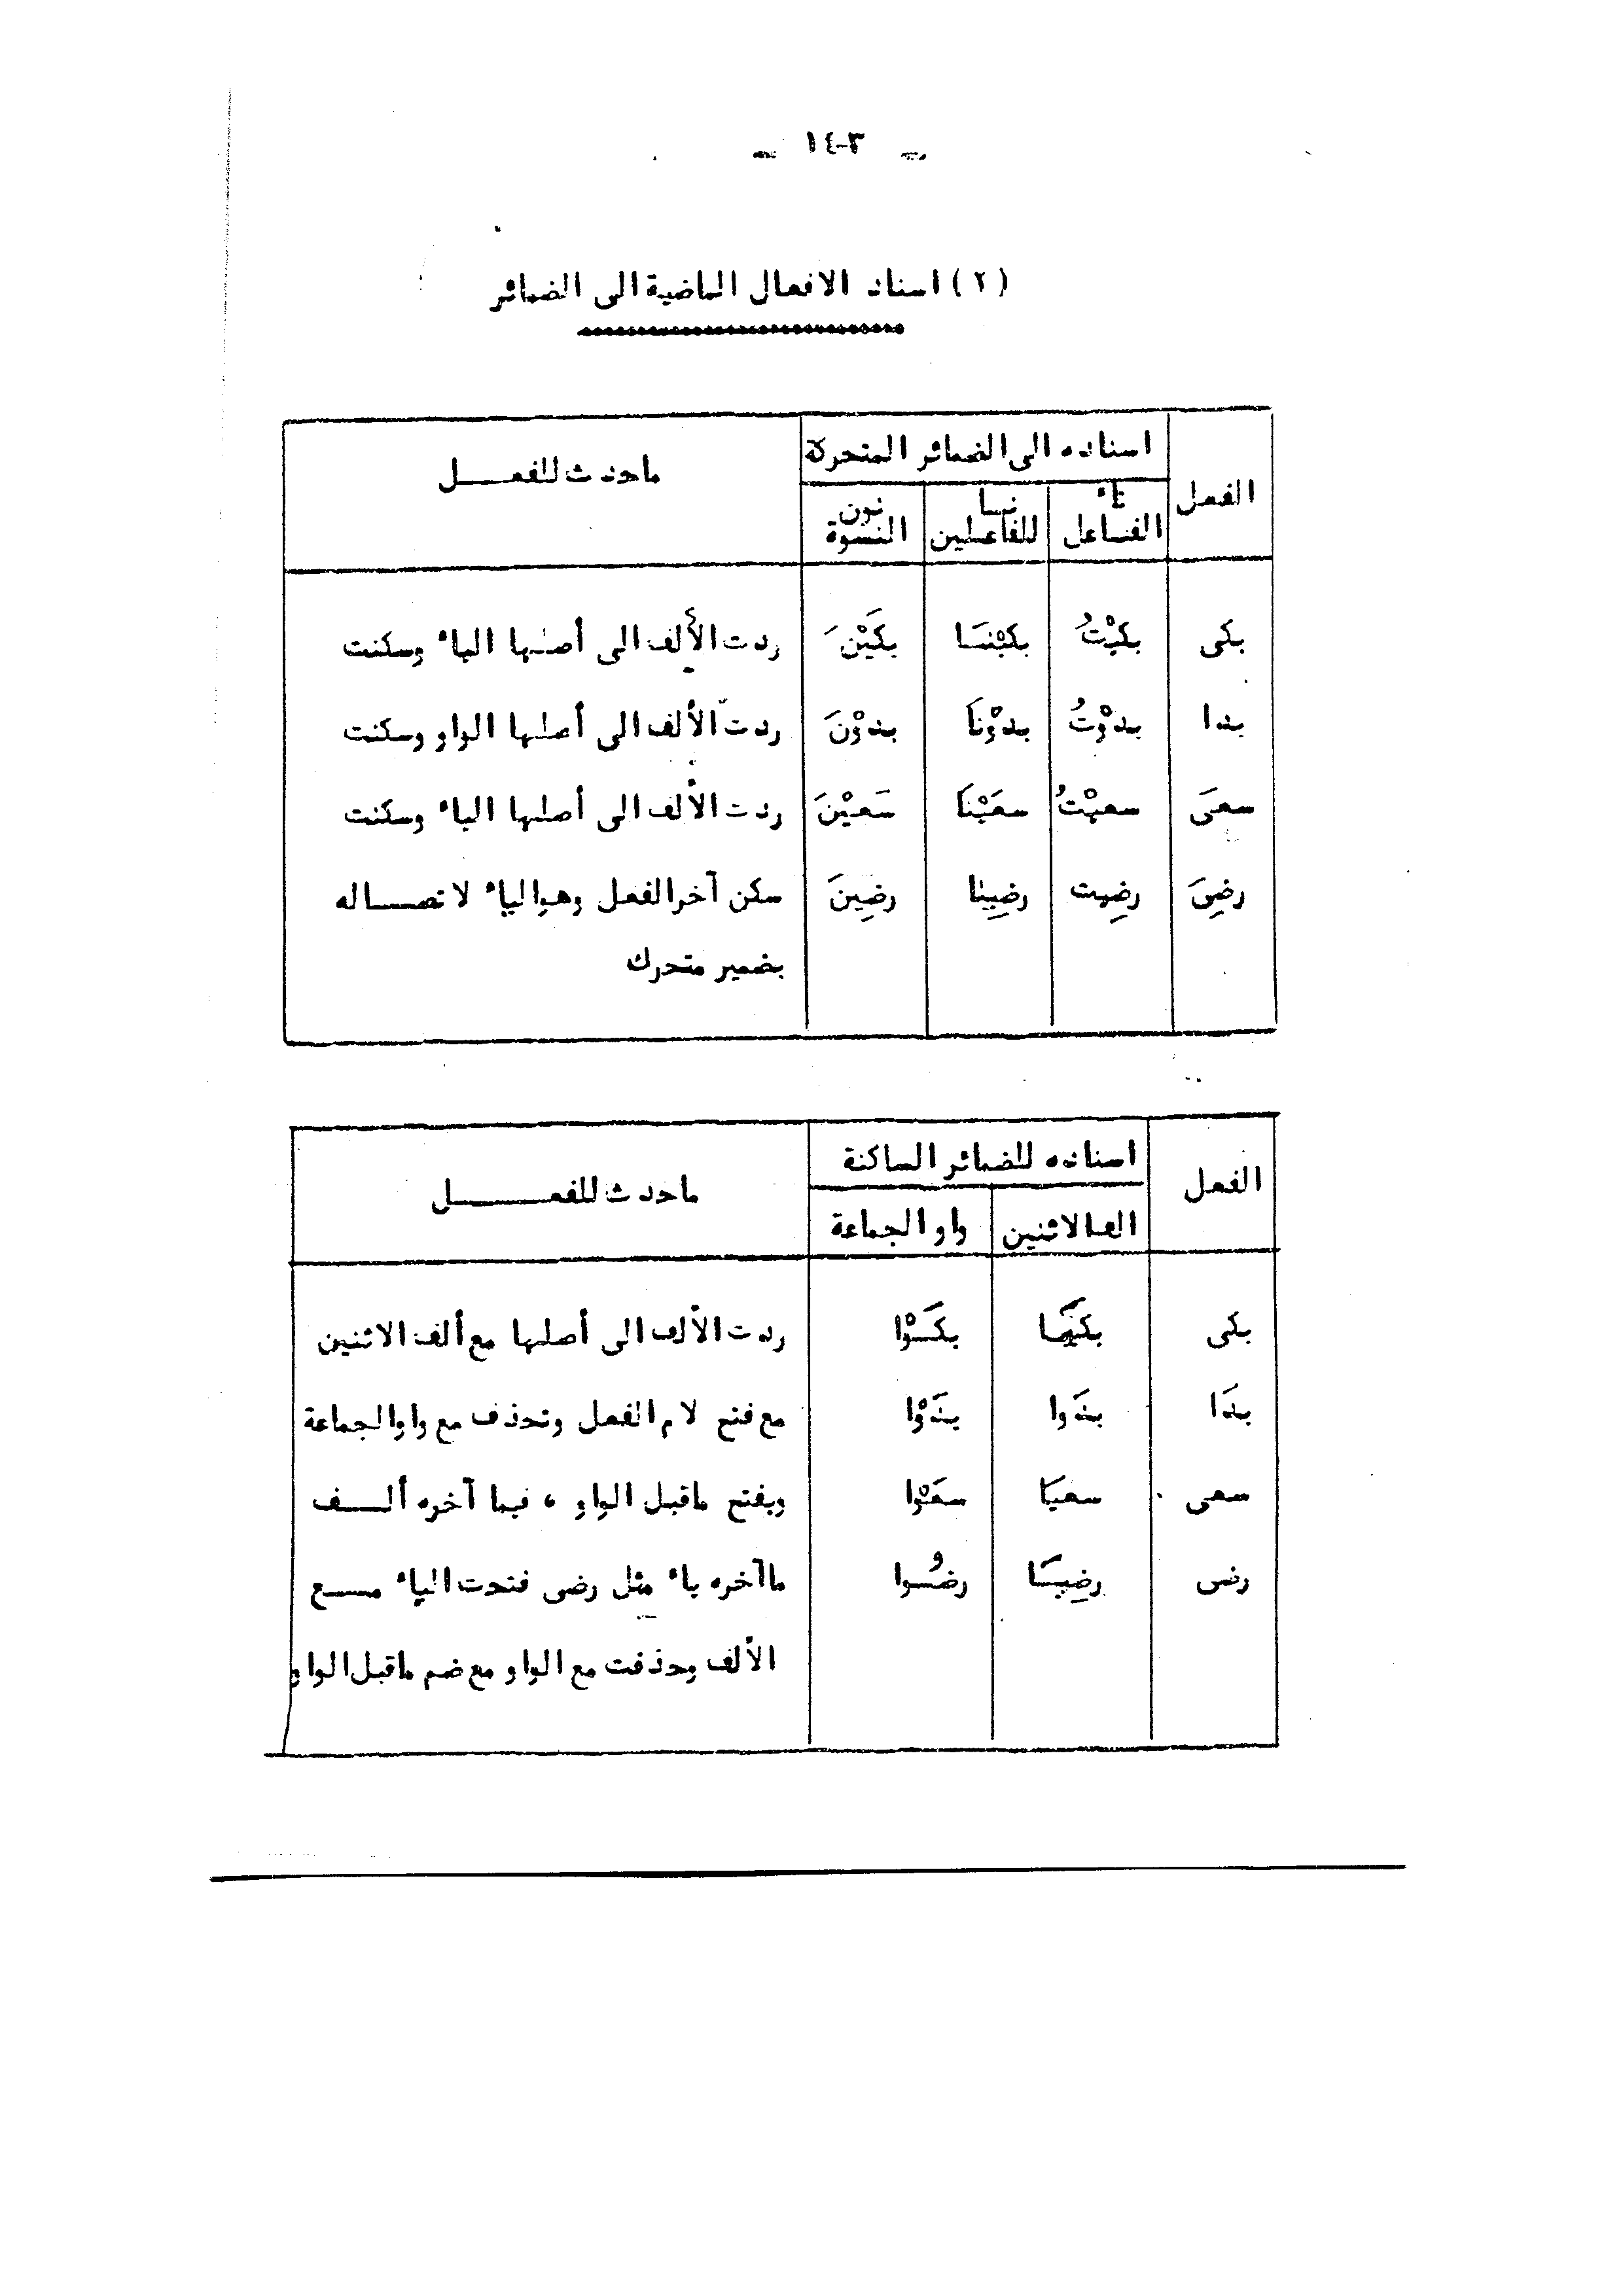 ـ ١٤٠٣ ـ
(٢) اسناد الافعال الماضية الى الضمائر
الفعل
اسناده الى الضمائر المتحركة
ما حدث للفعـــل
تاء الفـاعل
نـا للفاعـلين
نون النسوة
بكى بكيْتُ بكيْنـَا بكَيْنَ ردت الألف الى أصلـها الياء وسكنت
بدا بدوْتُ بدوْنَا بدوْنَ ردت الألف الى أصلـها الواو وسكنت
سعىَ سعيْتُ سعَيْنَا سَعيْنَ ردت الألف الى أصلها الياء وسكنت
رضِىَ رضِيت رضِينا رضِينَ سكن آخر الفعل وهو الياء لاتصـــاله
بضمير متحرك
الفعل
اسناده للضمائر الساكنة
ما حدث للفعــــــل
الف الاثنين
واو الجماعة
بكى بكَيَـا بكَـوْا ردت الألف الى أصلها مع ألف الاثنين
بدَا بدَوا بدَوْا مع فتح لام الفعل وتحذف مع واو الجماعة
سعى سعيَا سعَوْا وبفتح ماقبل الواو ، فيما آخره ألــف
رضى رضِيـَا رضُـوا ما آخره ياء مثل رضى فتحت الياء مــع
الألف وحذفت مع الواو مع ضم ماقبل الواو